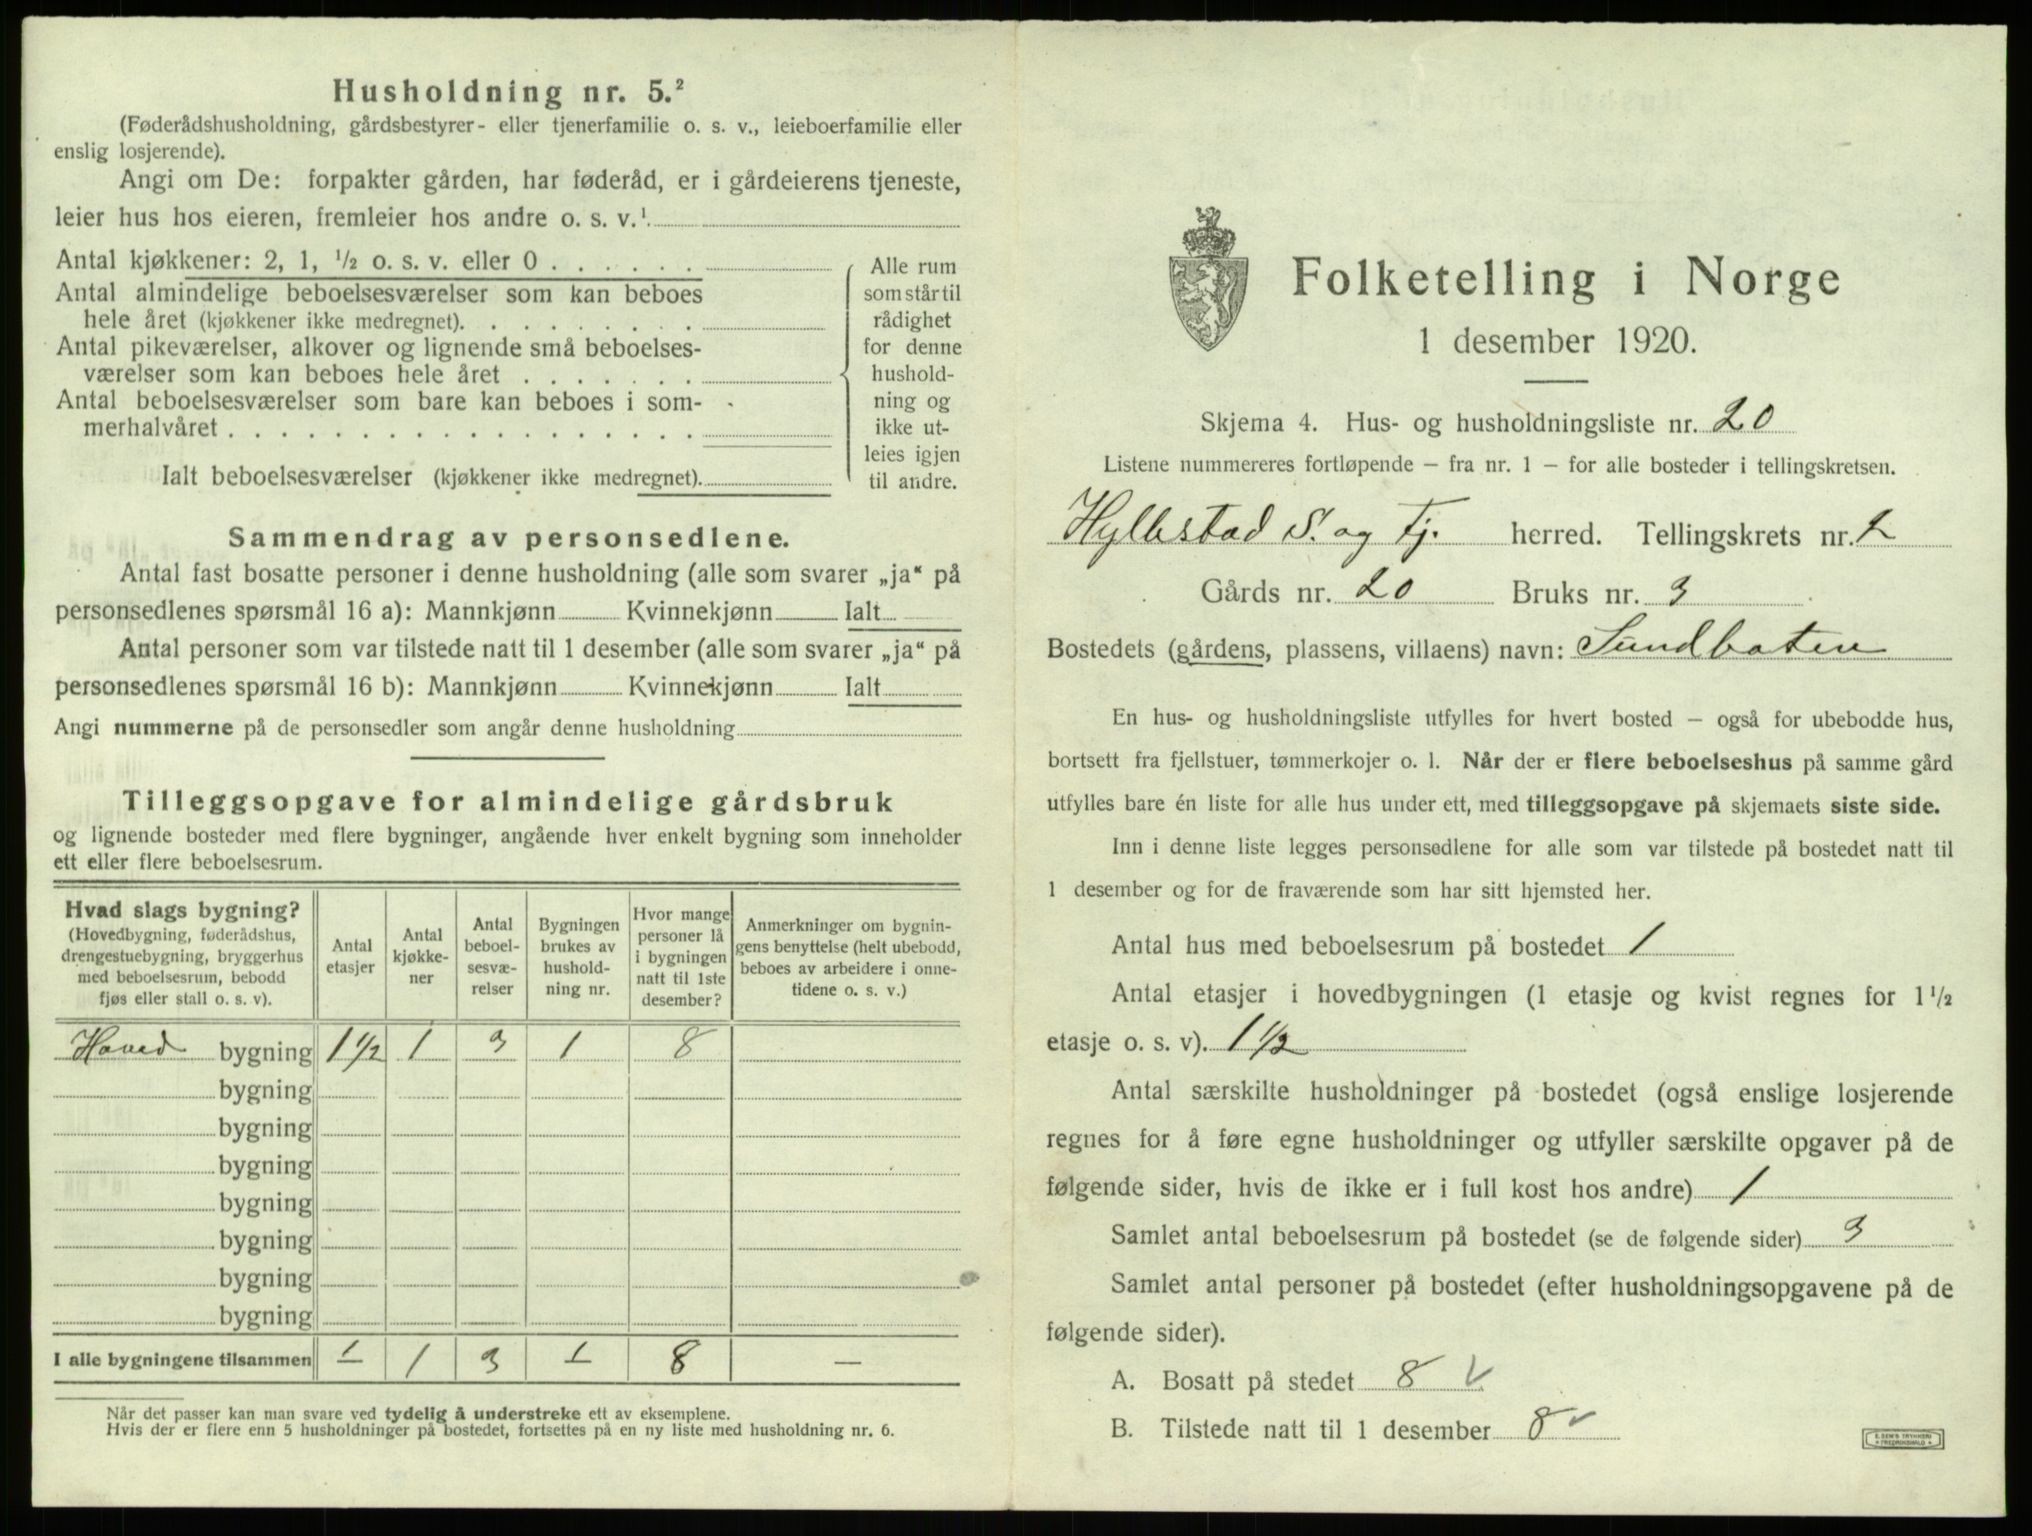 Husholdning nr. 5.²
(Føderådshusholdning, gårdsbestyrer- eller tjenerfamilie o. s. v., leieboerfamilie eller
enslig losjerende).
Angi om De: forpakter gården, har føderåd, er i gårdeierens tjeneste,
leier hus hos eieren, fremleier hos andre o. s. v.¹
Antal kjøkkener: 2, 1, ½ o. s. v. eller 0 . . . . . .
Antal almindelige beboelsesværelser som kan beboes
hele året (kjøkkener ikke medregnet). . . . . . . . .
Antal pikeværelser, alkover og lignende små beboelses-
værelser som kan beboes hele året . . . . . . .
Antal beboelsesværelser som bare kan beboes i som-
merhalvåret . . . . . . . . . . . . . . . . . .
Ialt beboelsesværelser (kjøkkener ikke medregnet).
Alle rum
som står til
rådighet
for denne
hushold-
ning og
ikke ut-
leies igjen
til andre.
Sammendrag av personsedlene.
Antal fast bosatte personer i denne husholdning (alle som svarer „ja“ på
personsedlenes spørsmål 16 a): Mannkjønn Kvinnekjønn Ialt
Antal personer som var tilstede natt til 1 desember (alle som svarer „ja“ på
personsedlenes spørsmål 16 b): Mannkjønn Kvinnekjønn Ialt
Angi nummerne på de personsedler som angår denne husholdning
Tilleggsopgave for almindelige gårdsbruk
og lignende bosteder med flere bygninger, angående hver enkelt bygning som inneholder
ett eller flere beboelsesrum.
Hvad slags bygning?
(Hovedbygning, føderådshus,
drengestuebygning, bryggerhus
med beboelsesrum, bebodd
fjøs eller stall o. s. v).
Antal
etasjer
Antal
kjøkke-
ner
Antal
beboel-
sesvæ-
relser
Bygningen
brukes av
hushold-
ning nr.
Hvor mange
personer lå
i bygningen
natt til 1ste
desember?
Anmerkninger om bygnin-
gens benyttelse (helt ubebodd,
beboes av arbeidere i onne-
tidene o. s. v.)
Hoved bygning 1½ 1 3 1 8
bygning
bygning
bygning
bygning
bygning
bygning
bygning
I alle bygningene tilsammen 1 1 3 1 8 —
Når det passer kan man svare ved tydelig å understreke ett av eksemplene.
Hvis der er flere enn 5 husholdninger på bostedet, fortsettes på en ny liste med husholdning nr. 6.
Folketelling i Norge
1 desember 1920.
Skjema 4. Hus- og husholdningsliste nr. 20
Listene nummereres fortløpende – fra nr. 1 – for alle bosteder i tellingskretsen.
Hyllestad S. og Fj. herred. Tellingskrets nr. 2
Gårds nr. 20 Bruks nr. 3
Bostedets (gårdens, plassens, villaens) navn: Sundboten
En hus- og husholdningsliste utfylles for hvert bosted – også for ubebodde hus,
bortsett fra fjellstuer, tømmerkojer o. l. Når der er flere beboelseshus på samme gård
utfylles bare én liste for alle hus under ett, med tilleggsopgave på skjemaets siste side.
Inn i denne liste legges personsedlene for alle som var tilstede på bostedet natt til
1 desember og for de fraværende som har sitt hjemsted her.
Antal hus med beboelsesrum på bostedet 1
Antal etasjer i hovedbygningen (1 etasje og kvist regnes for 1½
etasje o. s. v). 1½
Antal særskilte husholdninger på bostedet (også enslige losjerende
regnes for å føre egne husholdninger og utfyller særskilte opgaver på de
følgende sider, hvis de ikke er i full kost hos andre) 1
Samlet antal beboelsesrum på bostedet (se de følgende sider) 3
Samlet antal personer på bostedet (efter husholdningsopgavene på de
følgende sider).
A. Bosatt på stedet 8 ✓
B. Tilstede natt til 1 desember 8 ✓